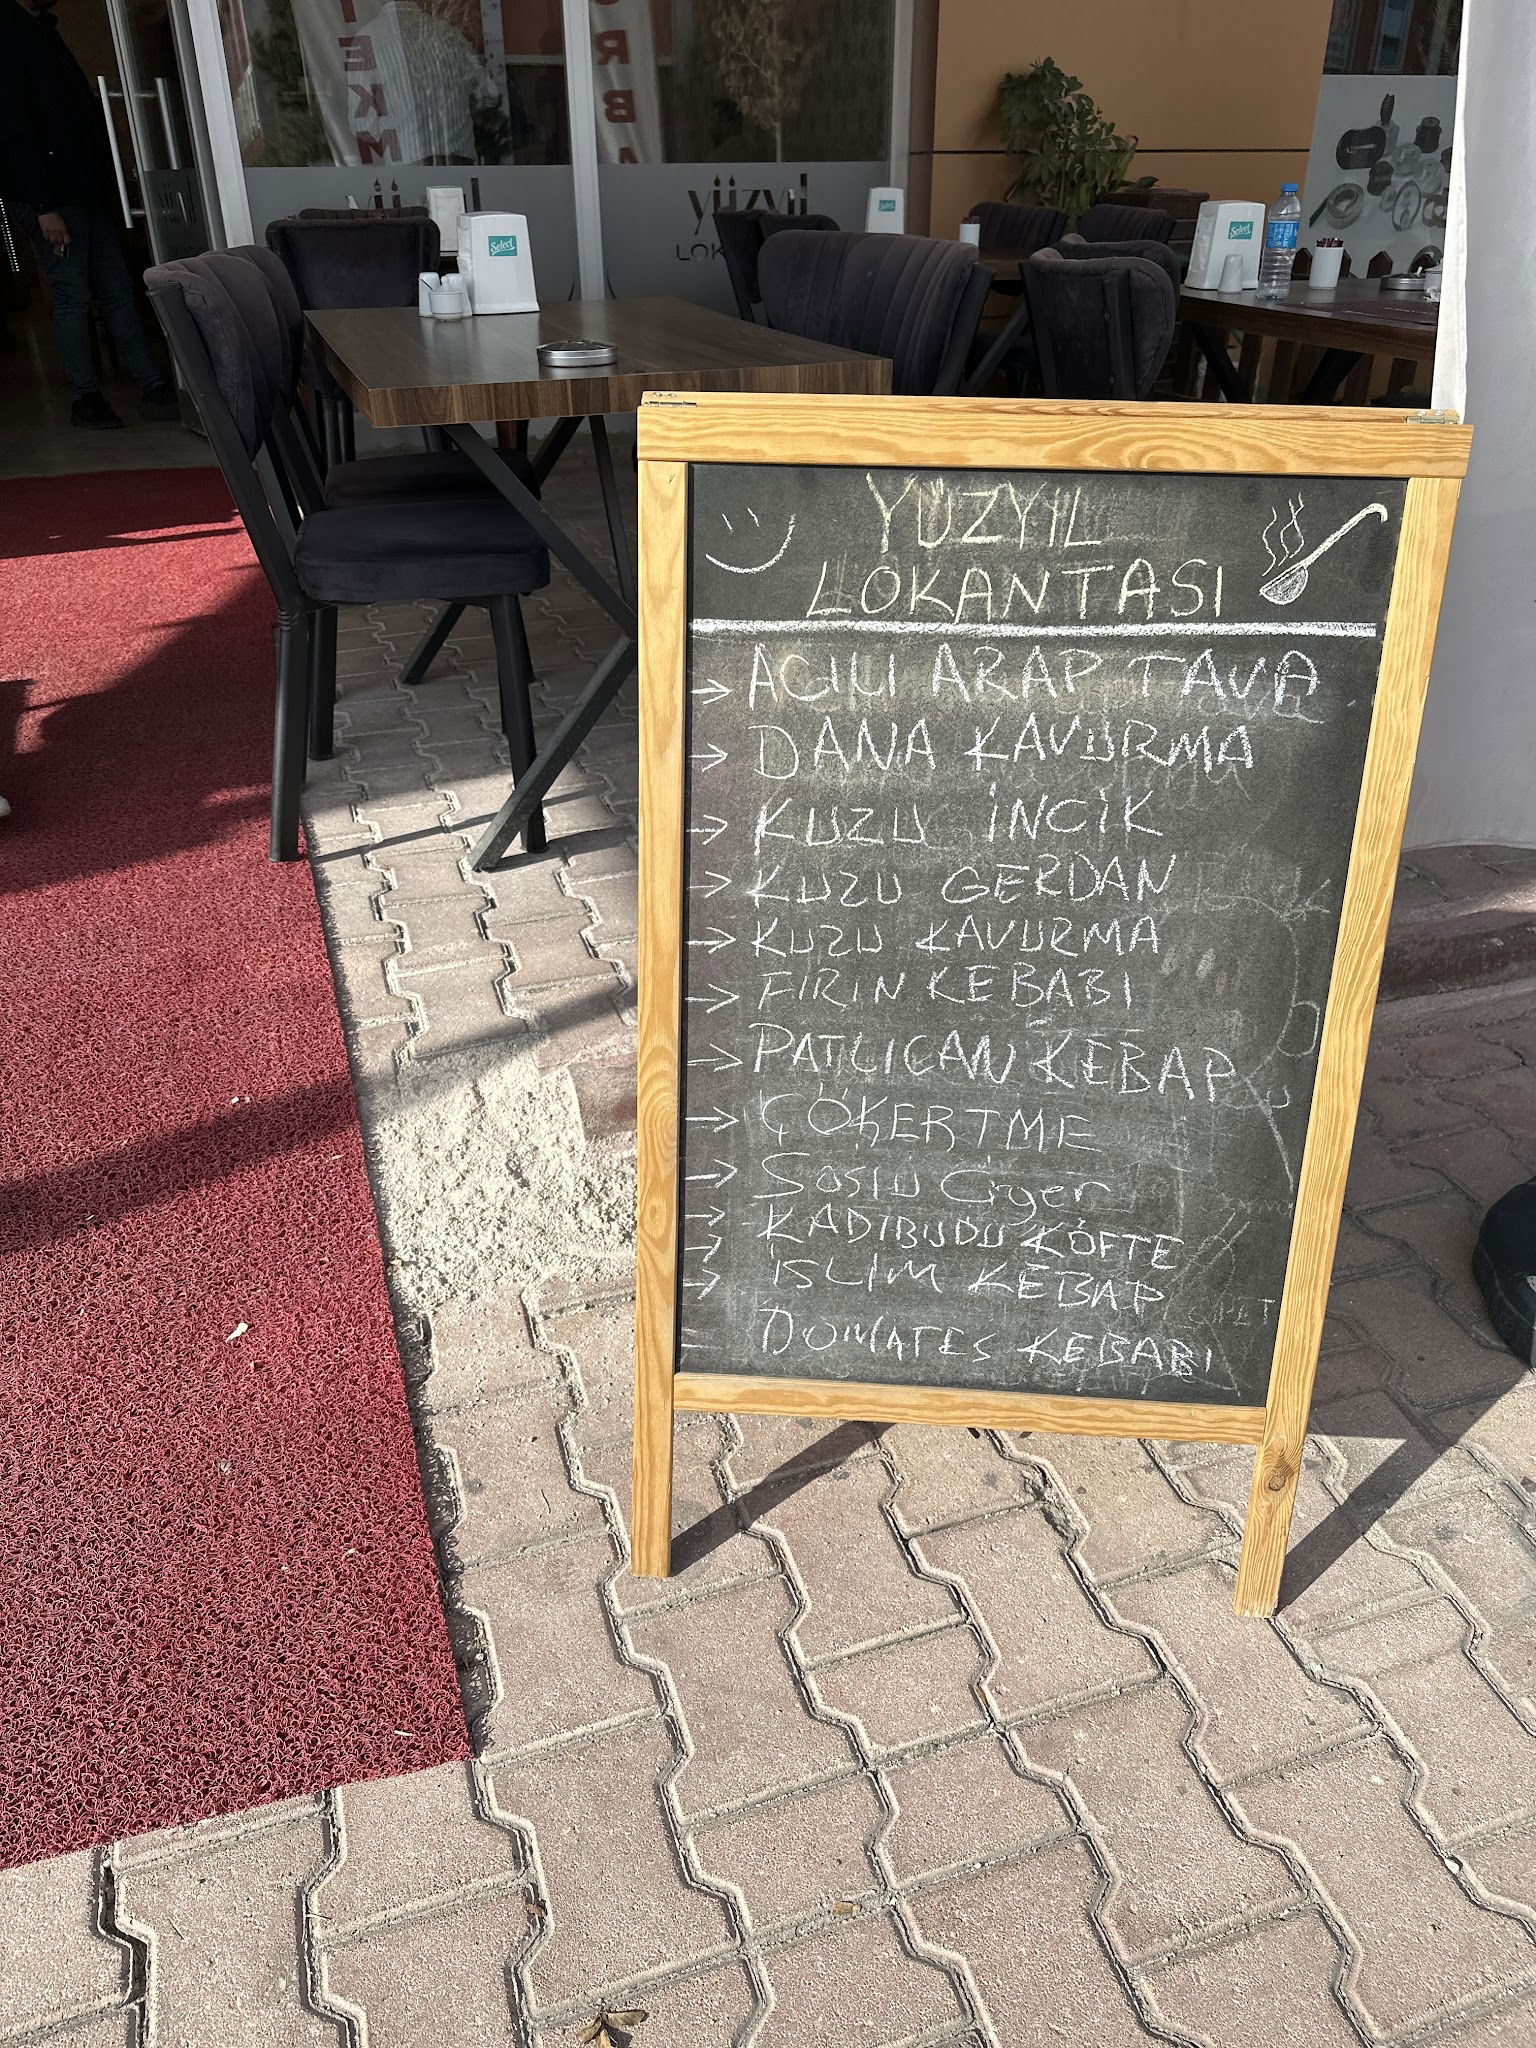 TEKM
ORBA
yüzyıl
yüzyıl
LOK
Select
Select
Select
YÜZYIL
LOKANTASI
→ ACILI ARAP TAVA
→ DANA KAVURMA
→ KUZU İNCİK
→ KUZU GERDAN
→ KUZU KAVURMA
→ FIRIN KEBABI
→ PATLICAN KEBAP
→ ÇÖKERTME
→ SOSLU Ciğer
→ KADIBUDU KÖFTE
→ İSLİM KEBAP
DOMATES KEBABI